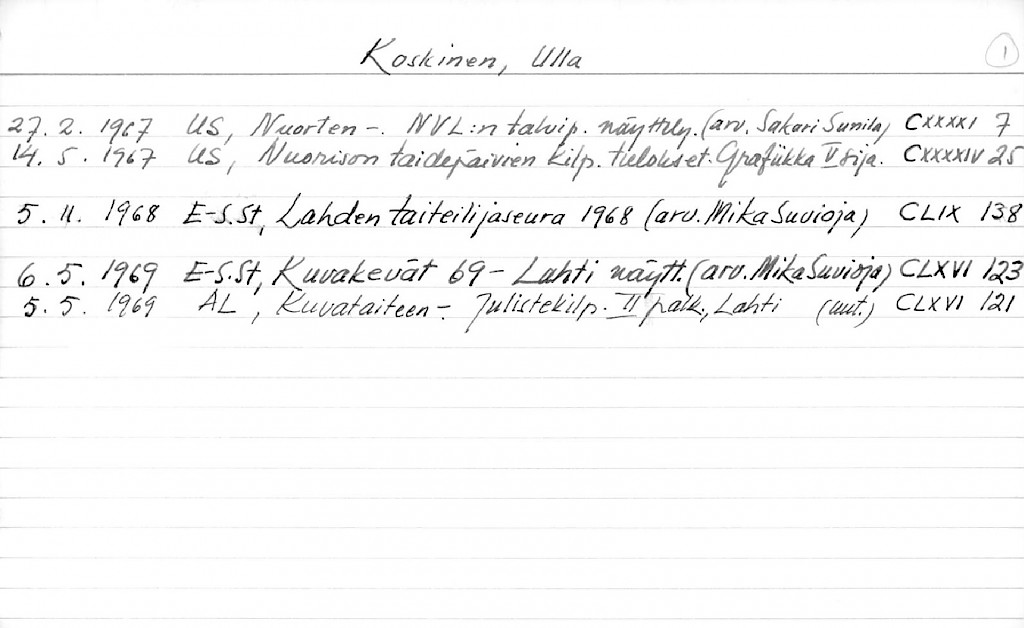 Koskinen, Ulla 1
27. 2. 1967 US, Nuorten -. NVL:n talvip. näyttely. (arv. Sakari Sunila) CXXXXI 7
14. 5. 1967 US, Nuorison taidepäivien kilp. tulokset. Grafiikka V sija. CXXXXIV 25
5. 11. 1968 E-S.St, Lahden taiteilijaseura 1968 (arv. Mika Suvioja) CLIX 138
6. 5. 1969 E-S.St, Kuvakevät 69 - Lahti näytt. (arv. Mika Suvioja) CLXVI 123
5. 5. 1969 AL, Kuvataiteen -. Julistekilp. II palk., Lahti (uut.) CLXVI 121